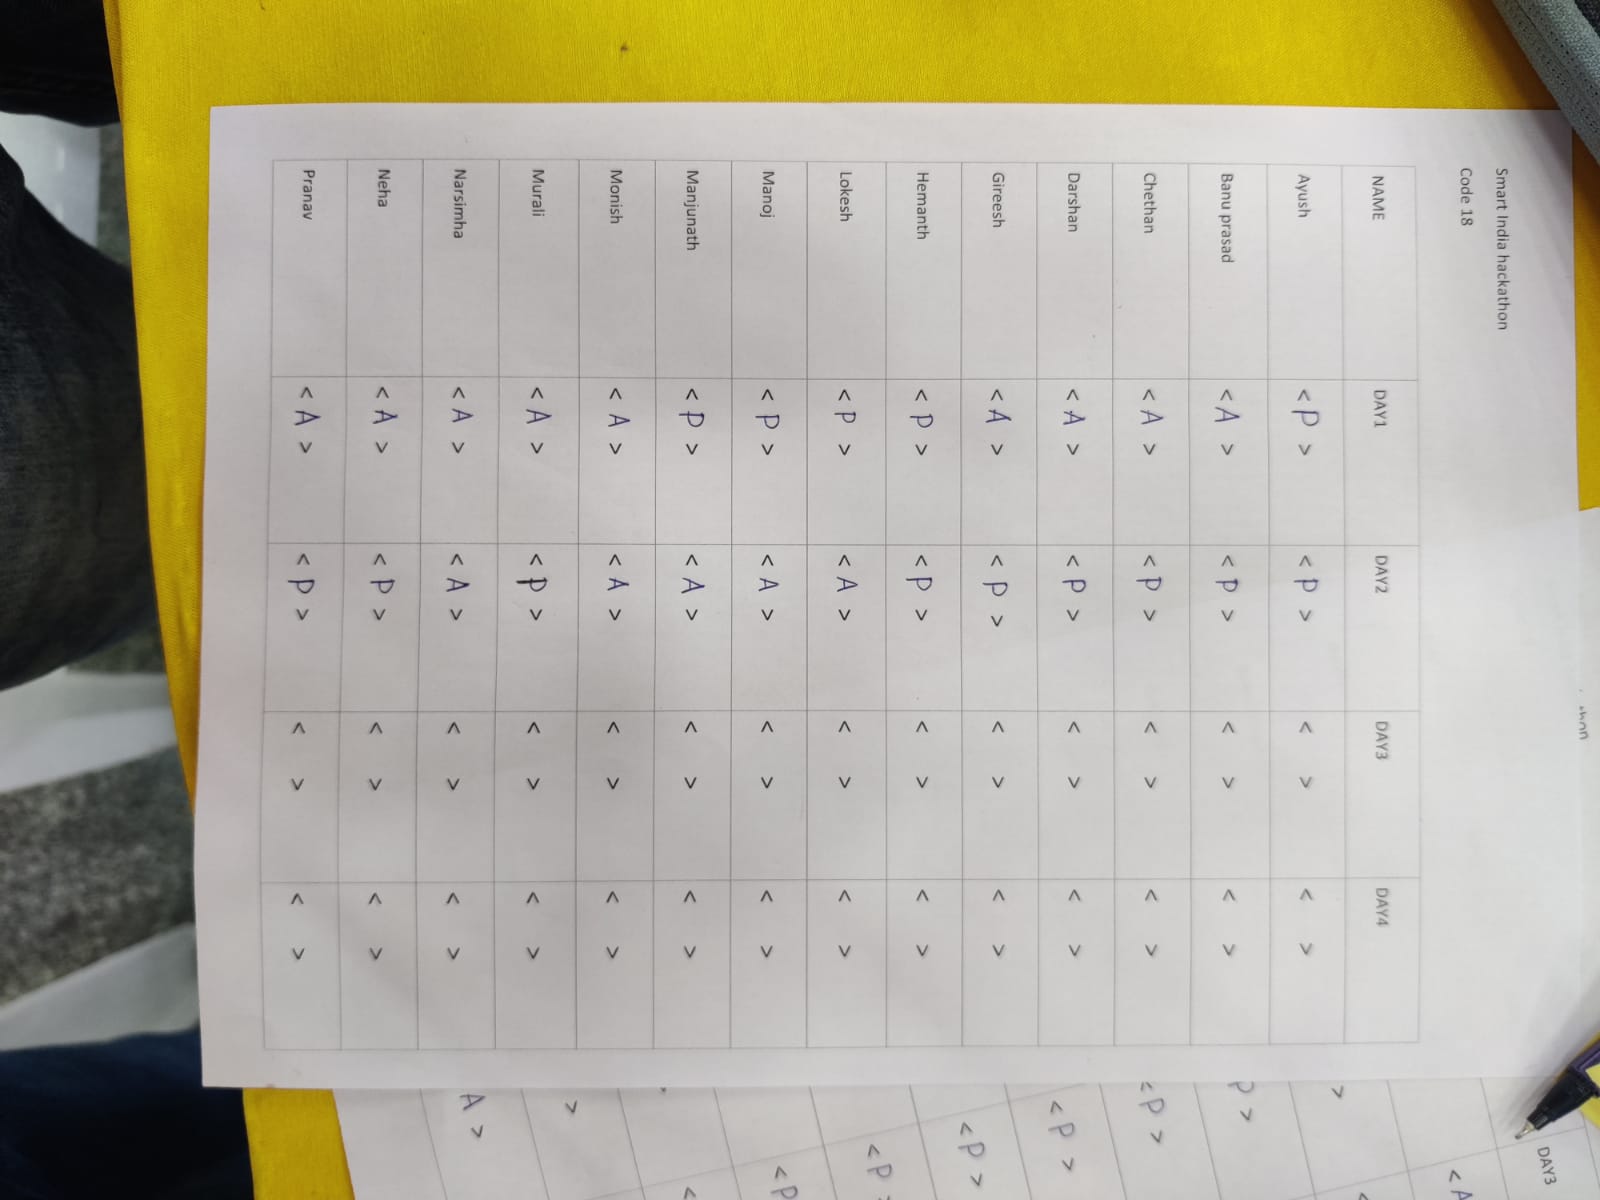 Smart India hackathon
Code 18
NAME DAY1 DAY2 DAY3 DAY4
Ayush < P > < P > < > < >
Banu prasad < A > < P > < > < >
Chethan < A > < P > < > < >
Darshan < A > < P > < > < >
Gireesh < A > < P > < > < >
Hemanth < P > < P > < > < >
Lokesh < P > < A > < > < >
Manoj < P > < A > < > < >
Manjunath < P > < A > < > < >
Monish < A > < A > < > < >
Murali < A > < P > < > < >
Narsimha < A > < A > < > < >
Neha < A > < P > < > < >
Pranav < A > < P > < > < >
DAY3
< A
>
P >
< P >
< P >
< P >
< P
< P
<
>
A >